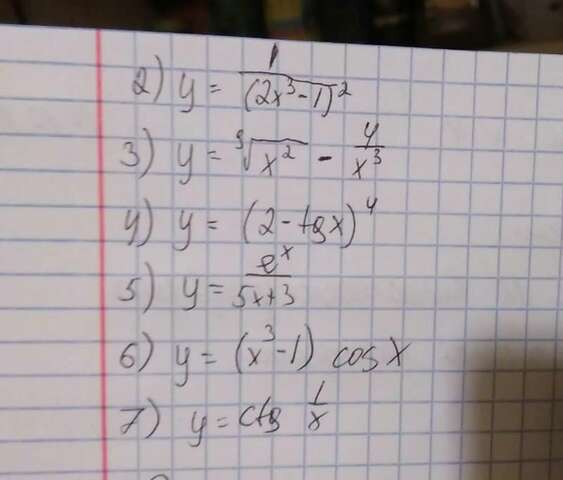 2) y = 1/(2x³-1)²
3) y = ³√x² - 4/x³
4) y = (2-tgx)⁴
5) y = eˣ/5x+3
6) y = (x³-1) cosx
7) y = ctg 1/x